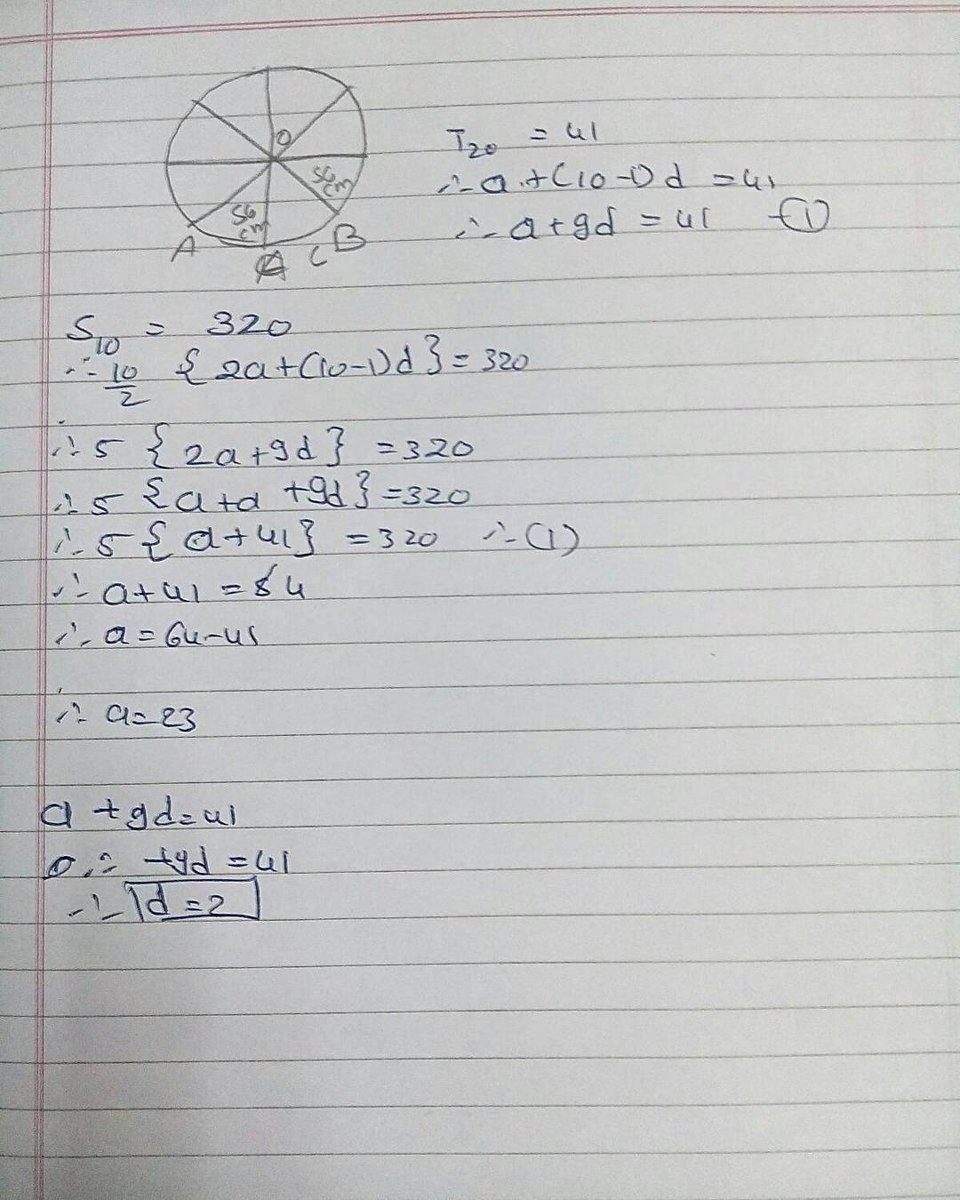 O
56 cm
56 cm
A
C B
T20 = 41
∴ a + (10-1)d = 41
∴ a + 9d = 41 -(1)
S10 = 320
∴ 10/2 {2a+(10-1)d} = 320
∴ 5 {2a+9d} = 320
∴ 5 {a+a+9d} = 320
∴ 5 {a+41} = 320 ∴ (1)
∴ a+41 = 64
∴ a = 64-41
∴ a = 23
a + 9d = 41
∴ +9d = 41
∴ d = 2